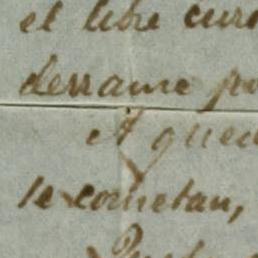 el libre curs
derrame po
A qued
se cometan,